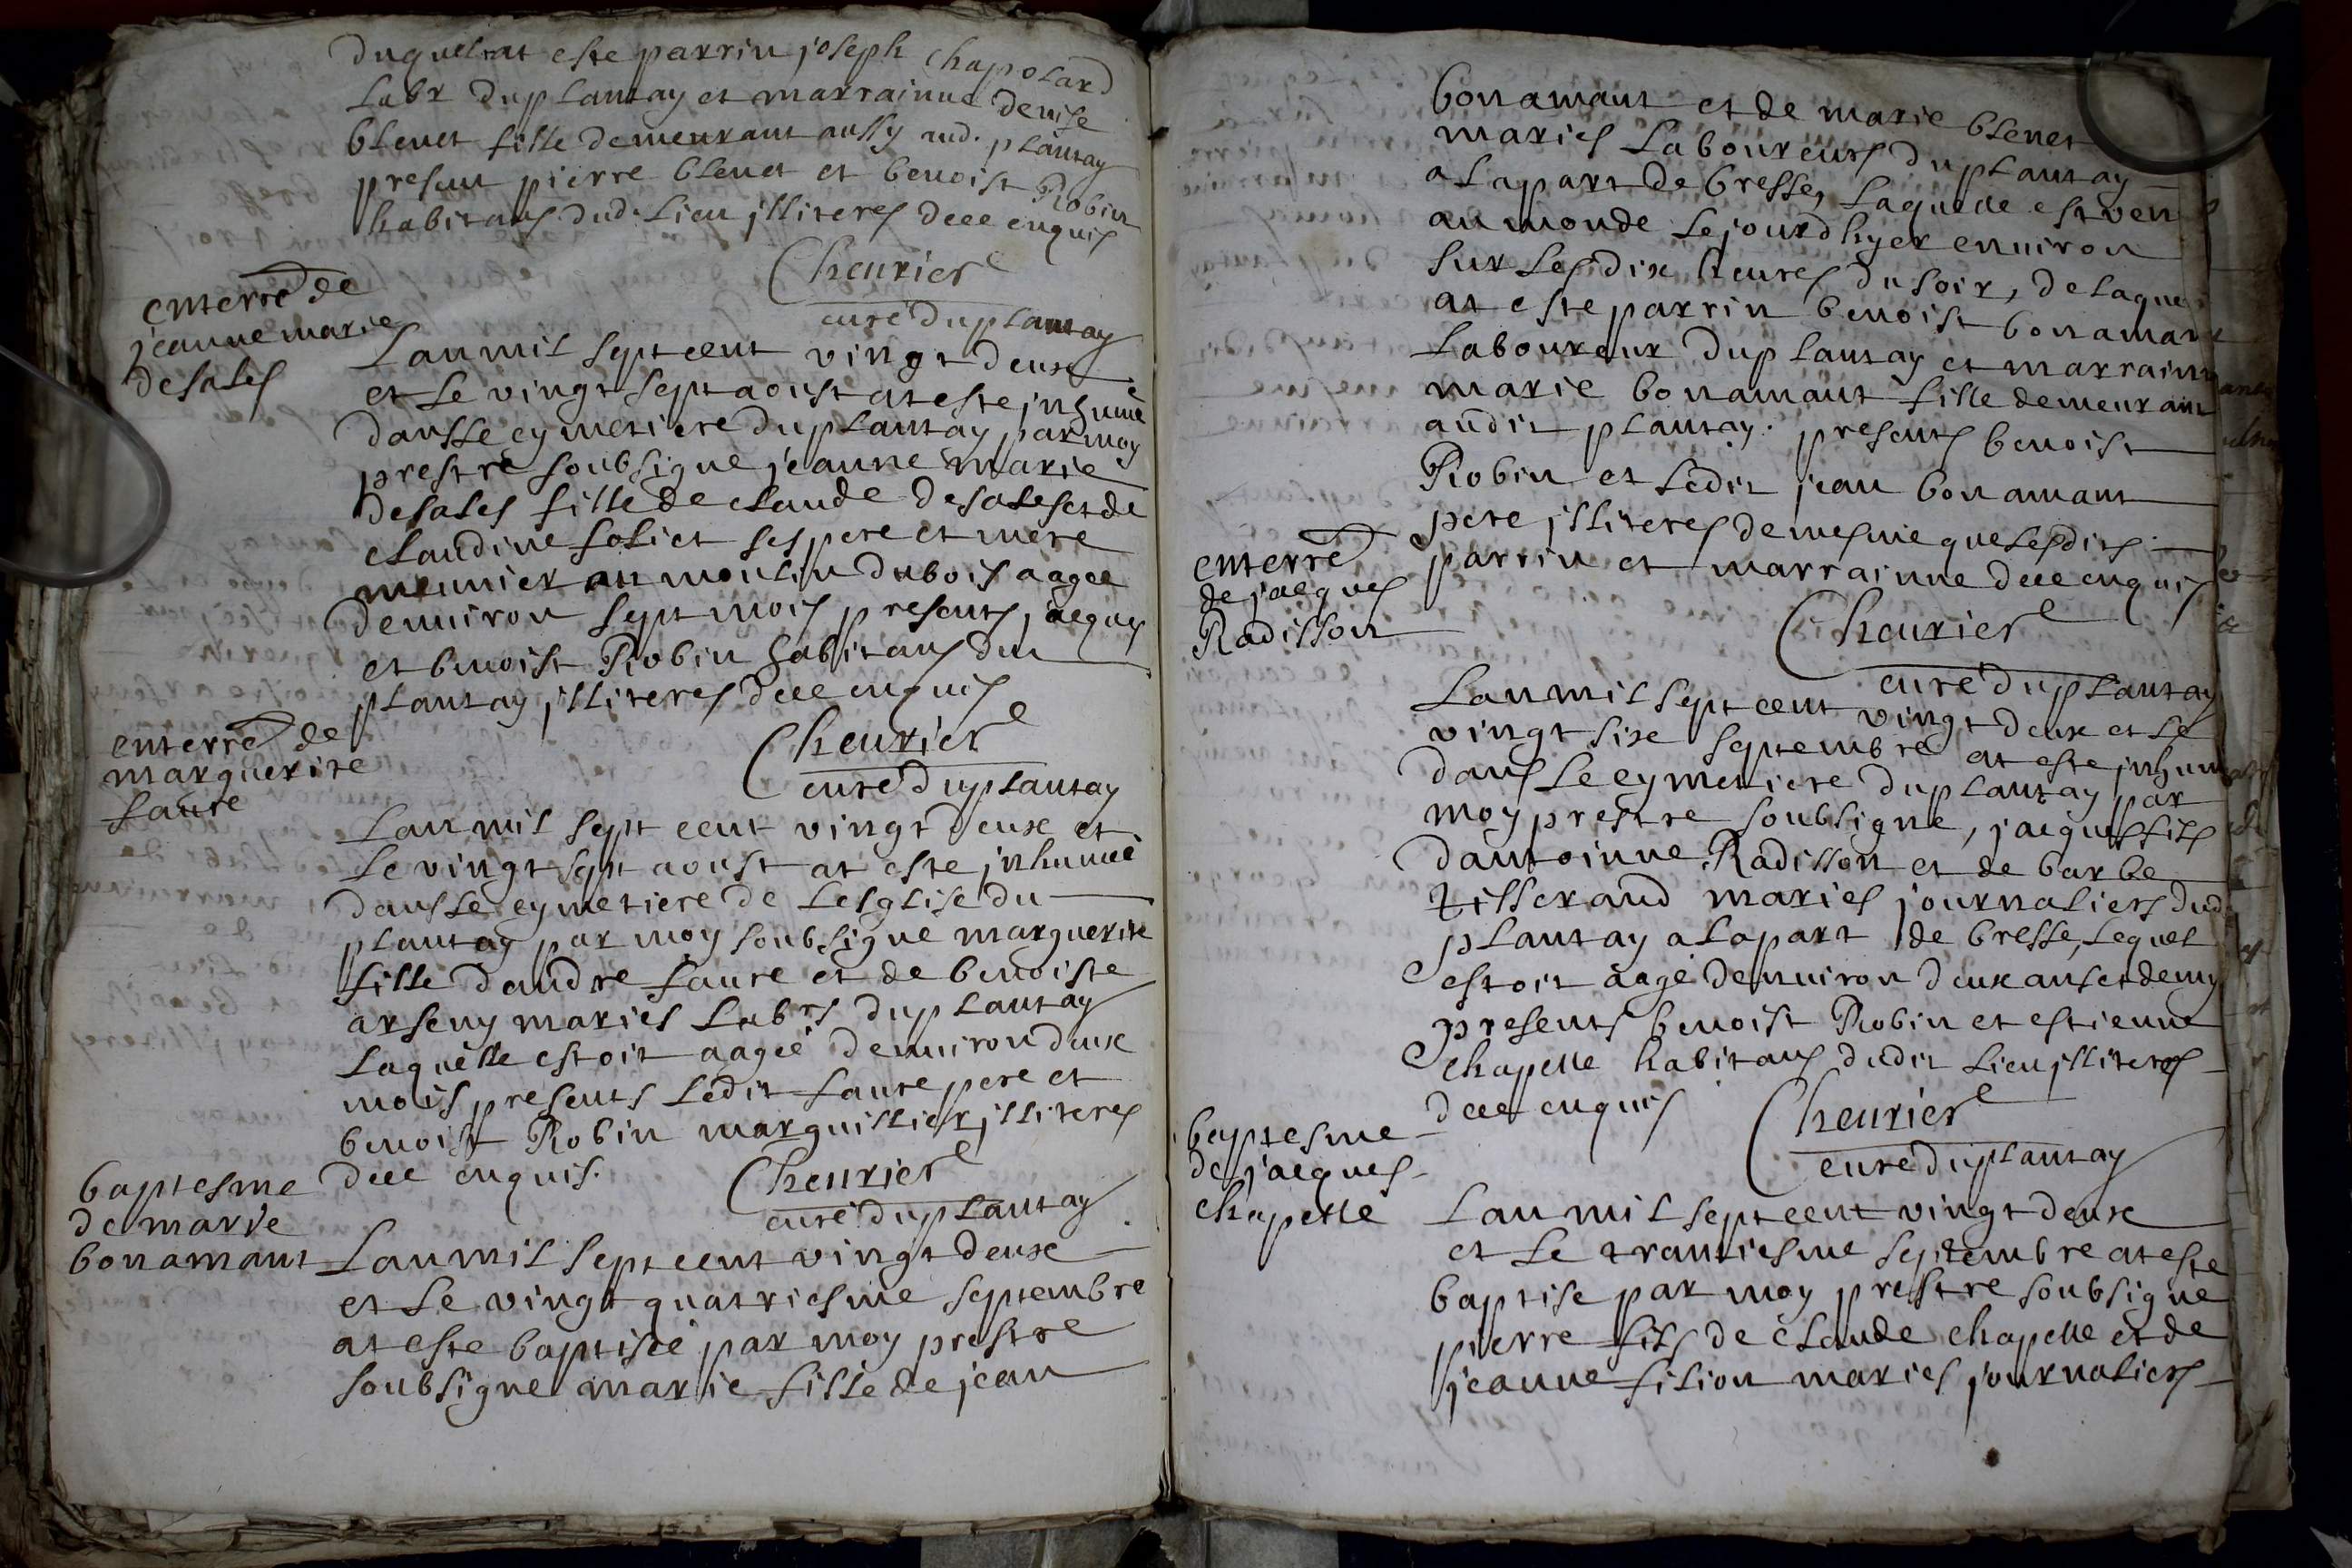 duquel at este parrin joseph chapolard
labr du plantay et marrainne denise
blenet fille demeurant aussy aud. plantay
present pierre blenet et benoist Robin
habitans dud. lieu illiteres dece enquis
Cheurier
curé du plantay
enterré de
jeanne marie
desales
Lan mil sept cent vingt deux
et le vingt sept aoust at este inhumé
dans le cymetiere du plantay par moy
prestre soubsigne jeanne marie
desales fille de claude desales et de
claudine soliet ses pere et mere
meunier au moulin du bois aagée
denuiron sept mois presents jacques
et benoist Robin habitans du
plantay illiteres dece enquis
Cheurier
curé du plantay
enterré de
marguerite
faure
Lan mil sept cent vingt deux et
le vingt sept aoust at este inhumé
dans le cymetiere de lesglise du
plantay par moy soubsigne marguerite
fille dandre faure et de benoiste
arseny mariés labrs du plantay
laquelle estoit aagée denuiron deux
mois presents ledit faure pere et
benoist Robin marguillier illiteres
dece enquis.
Cheurier
curé du plantay
baptesme
de marie
bonamant
Lan mil sept cent vingt deux
et le vingt quatriesme septembre
at este baptisée par moy prestre
soubsigne marie fille de jean
bonamant et de marie blenet
mariés laboureurs du plantay
a la part de bresse, laquelle est ven
au monde le jourdhyer enuiron
sur les dix heures du soir, delaque
at este parrin benoist bonamant
laboureur du plantay et marrainn
marie bonamant fille demeurant
audit plantay. presents benoist
Robin et ledit jean bonamant
pere illiteres de mesme que lesdits
parrin et marrainne dece enquis
Cheurier
curé du plantay
enterré
de jacques
Radisson
Lan mil sept cent vingt deux et le
vingt six septembre at este inhum
dans le cymetiere du plantay par
moy prestre soubsigne, jacques fils
dantoinne Radisson et de barbe
tisserand mariés journaliers dud
plantay a la part de bresse, lequel
estoit aagé denuiron deux ans et demy
presents benoist Robin et estienne
chapelle habitans dudit lieu illiteres
dece enquis
Cheurier
curé du plantay
baptesme
de jacques
chapelle
Lan mil sept cent vingt deux
et le trantiesme septembre at este
baptisé par moy prestre soubsigne
pierre fils de claude chapelle et de
jeanne filion mariés journaliers